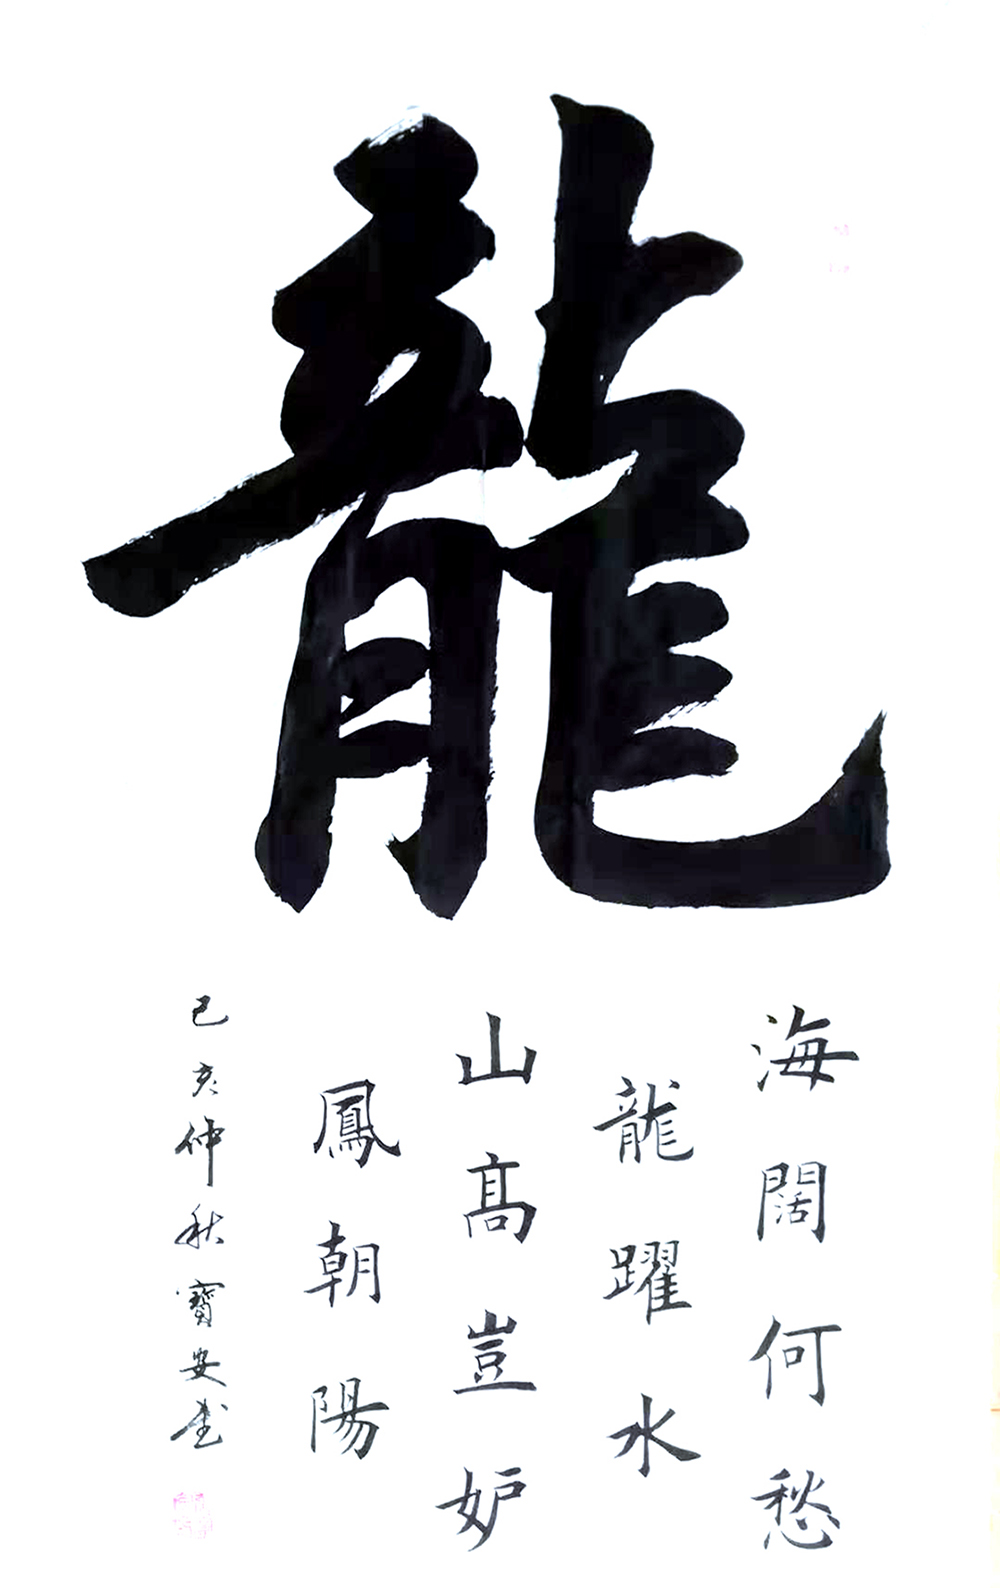 龍
海闊何愁
龍躍水
山高豈妒
鳳朝陽
己亥仲秋寶安書